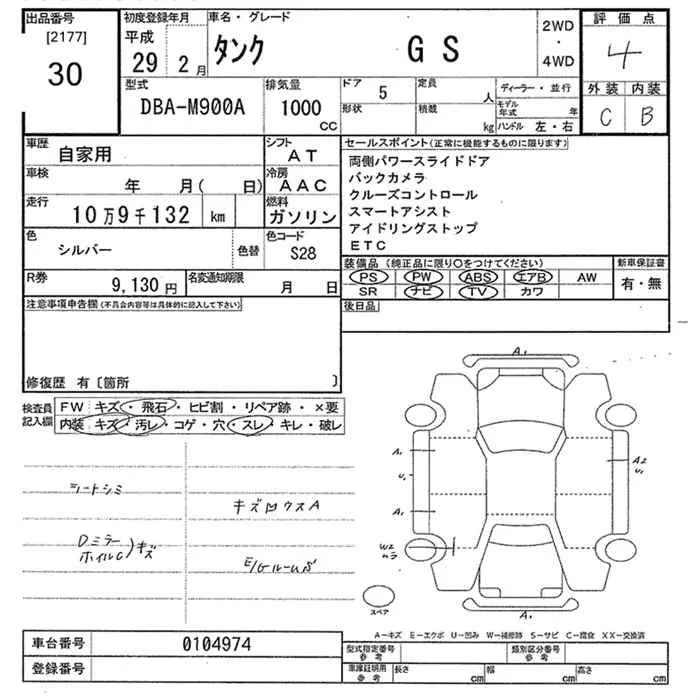 出品番号
[2177]
30
初度登録年月
平成
29 2 月
車名・グレード
タンク GS
2WD
・
4WD
評価点
4
外装 内装
C B
型式
DBA-M900A
排気量
1000
CC
ドア
5
定員
人
形状
積載
kg
ディーラー・並行
モデル年式 年
ハンドル 左・右
車歴
自家用
シフト
AT
車検
年 月( 日)
冷房
AAC
走行
10万9千132 km
燃料
ガソリン
色
シルバー
色替
色コード
S28
R券
9,130 円
名変通知期限
月 日
セールスポイント(正常に機能するものに限ります)
両側パワースライドドア
バックカメラ
クルーズコントロール
スマートアシスト
アイドリングストップ
ETC
装備品 (純正品に限り○をつけてください)
PS PW ABS エアB AW
SR ナビ TV カワ
新車保証書
有・無
後日品
注意事項申告欄(不具合内容等は具体的に記入して下さい)
修復歴 有〔箇所 〕
検査員記入欄
FW キズ・飛石・ヒビ割・リペア跡・×要
内装 キズ・汚レ・コゲ・穴・スレ・キレ・破レ
シートシミ
キズ凹ウスA
Dミラー
ホイルC)キズ
E/Gルーム
A1
A1
U1
A1
A2
U1
W2
ムラ
A1
スペア
A―キズ E―エクボ U―凹み W―補修跡 S―サビ C―腐食 XX―交換済
車台番号
0104974
登録番号
型式指定番号
参考
類別区分番号
参考
車庫証明用
参考
長さ cm
幅 cm
高さ cm